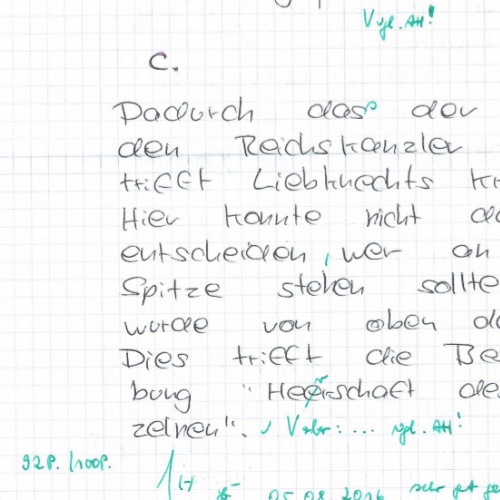 Vgl. AH!
C.
Dadurch das der
den Reichskanzler
trifft Liebknechts
Hier konnte nicht
entscheiden, wer an
Spitze stehen sollte
wurde von oben
Dies trifft die Be
bung "Herrschaft
zelnen". Verbr: ... vgl. AH!
92P. /100P.
1(-)
05.08.2016 sehr gt